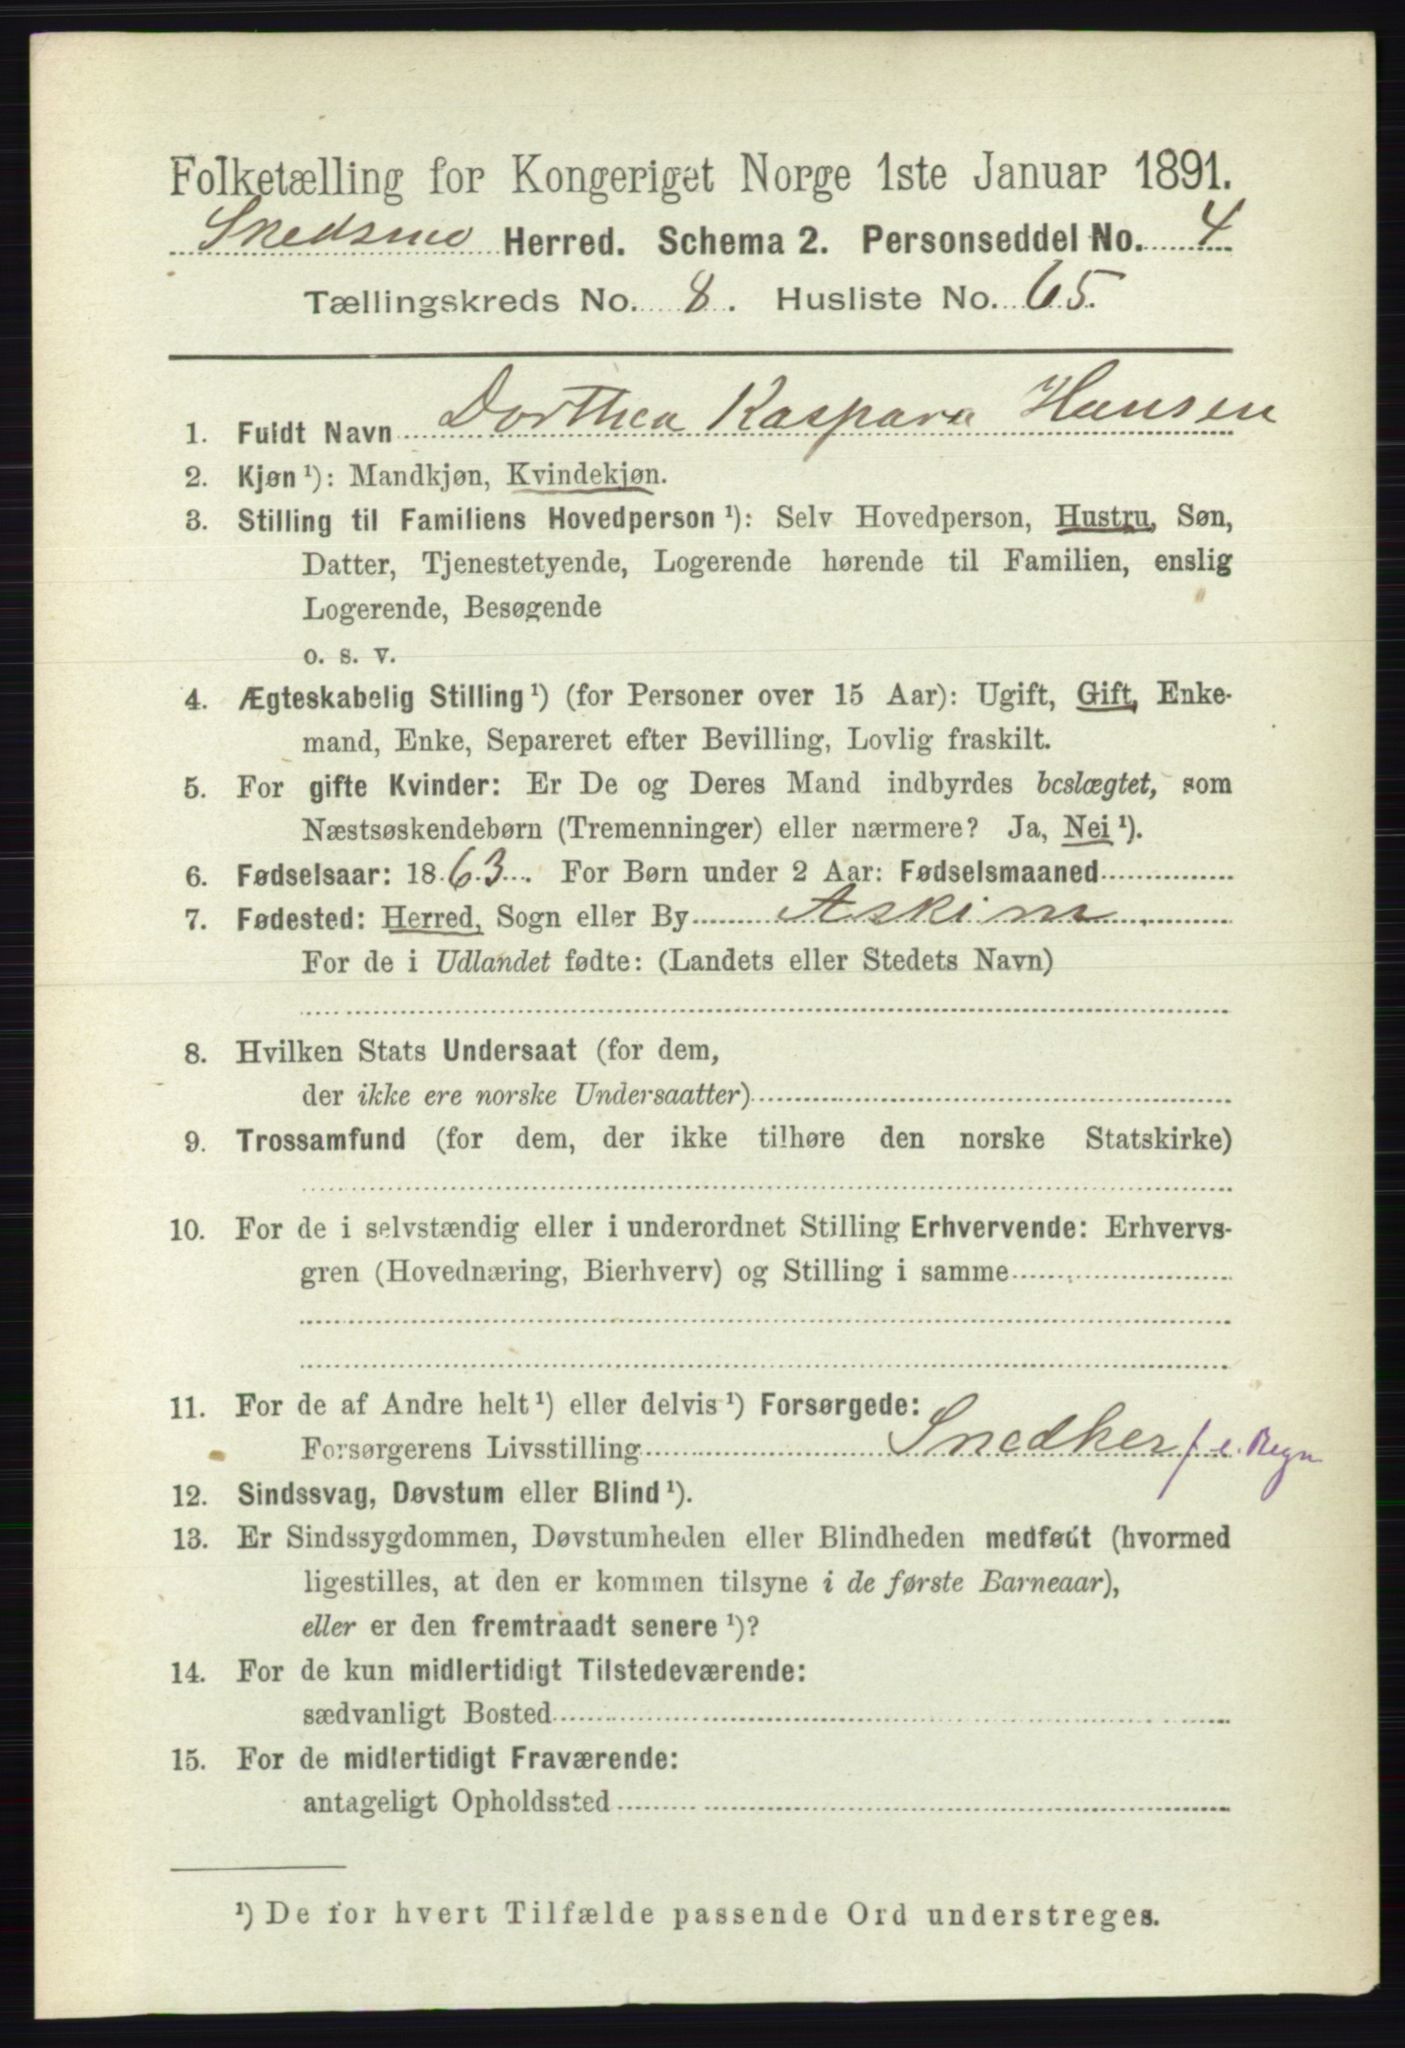 Folketælling for Kongeriget Norge 1ste Januar 1891.
Skedsmo Herred. Schema 2. Personseddel No. 4
Tællingskreds No. 8. Husliste No. 65.
1. Fuldt Navn Dorthea Kaspara Hansen
2. Kjøn¹): Mandkjøn, Kvindekjøn.
3. Stilling til Familiens Hovedperson¹): Selv Hovedperson, Hustru, Søn,
Datter, Tjenestetyende, Logerende hørende til Familien, enslig
Logerende, Besøgende
o. s. v.
4. Ægteskabelig Stilling¹) (for Personer over 15 Aar): Ugift, Gift, Enke-
mand, Enke, Separeret efter Bevilling, Lovlig fraskilt.
5. For gifte Kvinder: Er De og Deres Mand indbyrdes beslægtet, som
Næstsøskendebørn (Tremenninger) eller nærmere? Ja, Nei¹).
6. Fødselsaar: 1863. For Børn under 2 Aar: Fødselsmaaned
7. Fødested: Herred, Sogn eller By Askim
For de i Udlandet fødte: (Landets eller Stedets Navn)
8. Hvilken Stats Undersaat (for dem,
der ikke ere norske Undersaatter)
9. Trossamfund (for dem, der ikke tilhøre den norske Statskirke)
10. For de i selvstændig eller i underordnet Stilling Erhvervende: Erhvervs-
gren (Hovednæring, Bierhverv) og Stilling i samme
11. For de af Andre helt¹) eller delvis¹) Forsørgede:
Forsørgerens Livsstilling Snedker f. e. Regn
12. Sindssvag, Døvstum eller Blind¹).
13. Er Sindssygdommen, Døvstumheden eller Blindheden medfødt (hvormed
ligestilles, at den er kommen tilsyne i de første Barneaar),
eller er den fremtraadt senere¹)?
14. For de kun midlertidigt Tilstedeværende:
sædvanligt Bosted
15. For de midlertidigt Fraværende:
antageligt Opholdssted
¹) De for hvert Tilfælde passende Ord understreges.